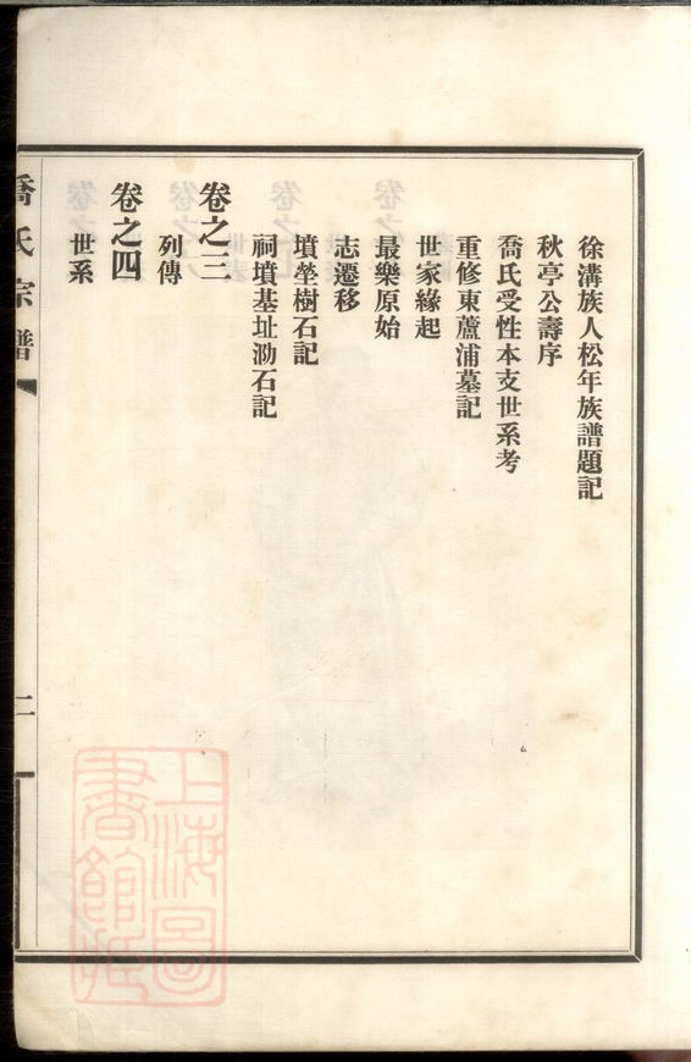 徐溝族人松年族譜題記
秋亭公壽序
喬氏受性本支世系考
重修東蘆浦墓記
世家緣起
最樂原始
志遷移
墳塋樹石記
祠墳基址泐石記
卷之三
列傳
卷之四
世系
喬氏宗譜
二
上海圖書館藏